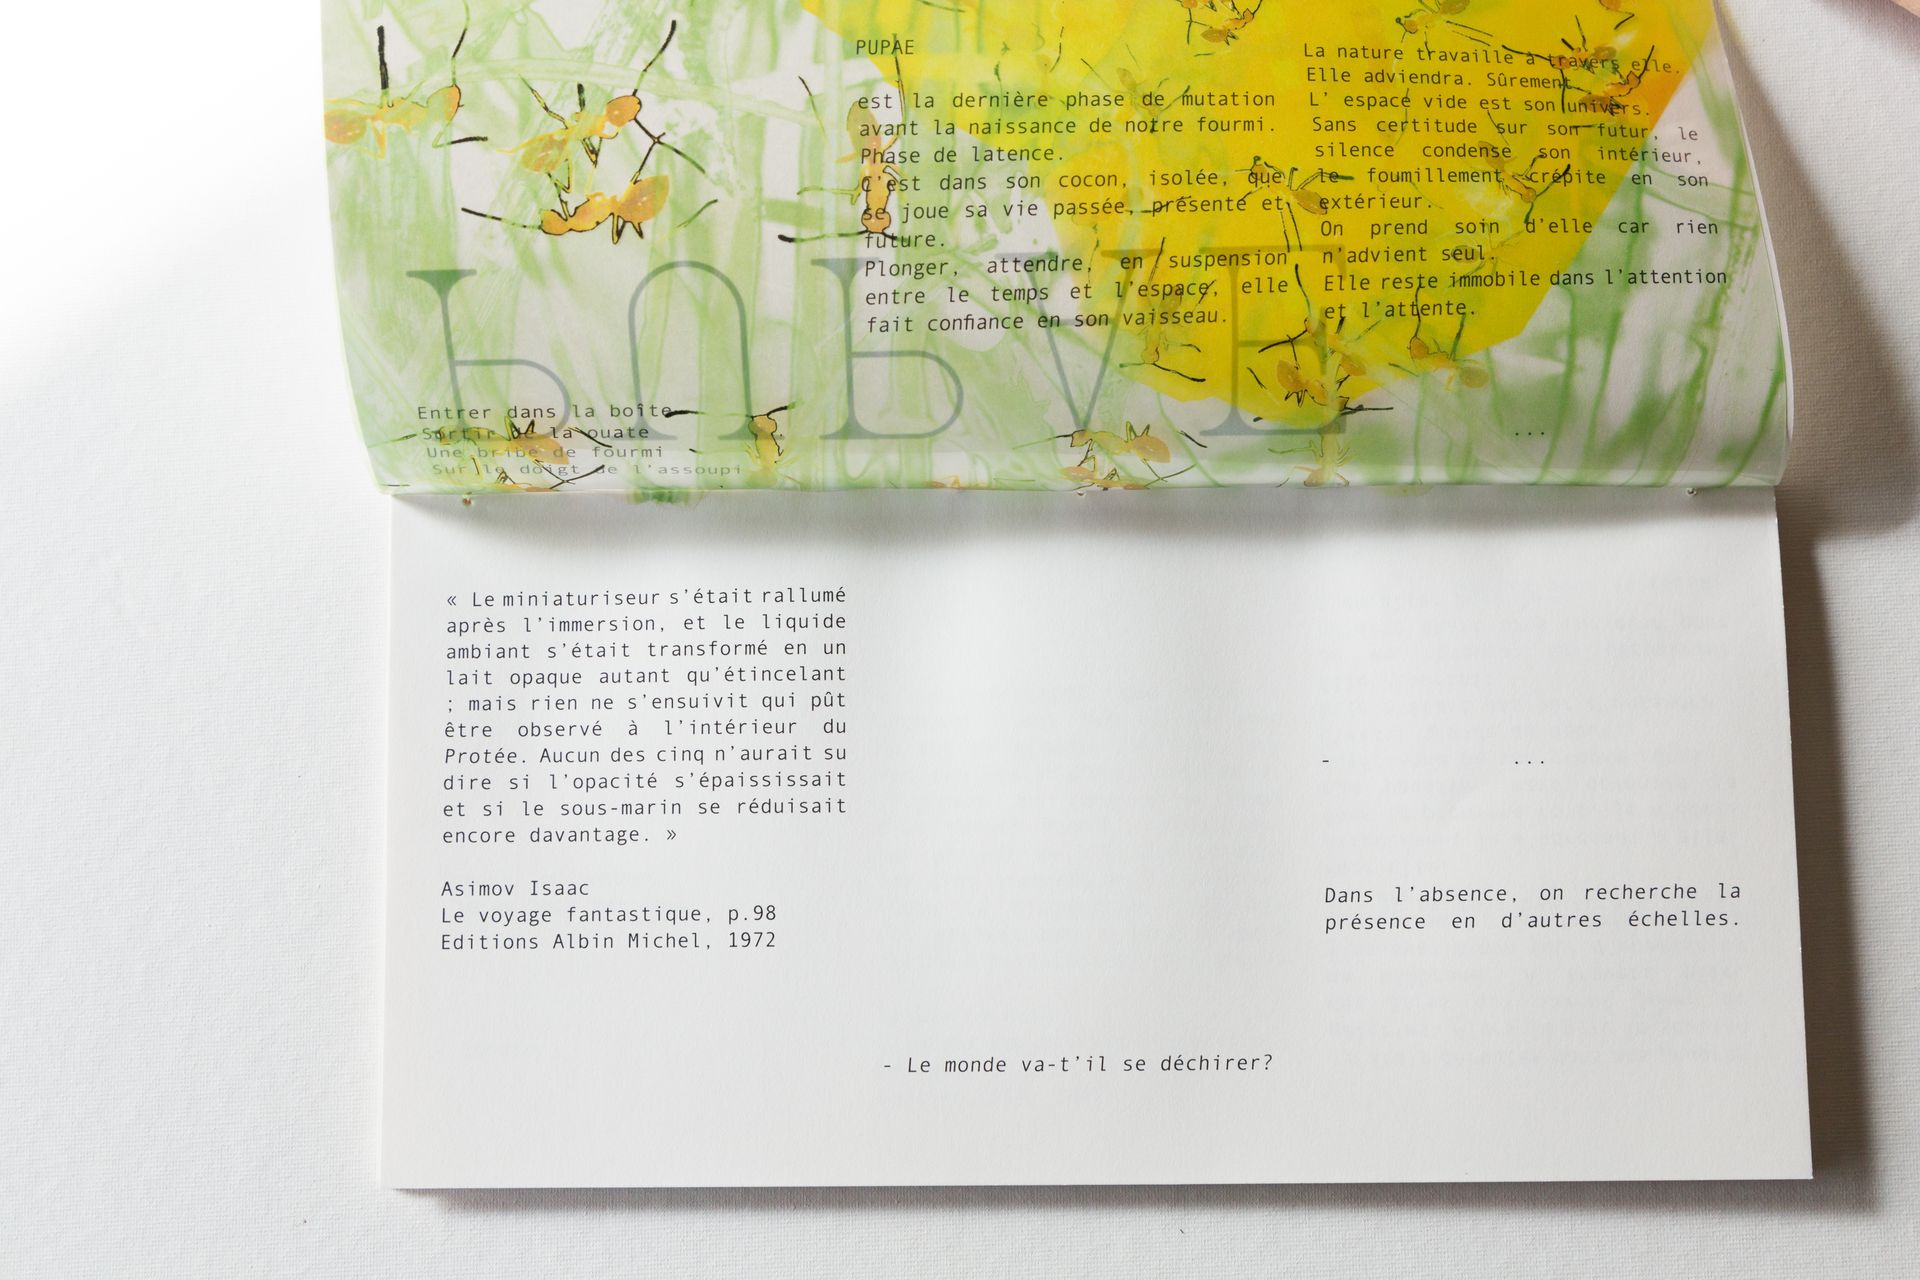 PUPAE
est la dernière phase de mutation
avant la naissance de notre fourmi.
Phase de latence.
C'est dans son cocon, isolée, que
se joue sa vie passée, présente et
future.
Plonger, attendre, en suspension
entre le temps et l'espace, elle
fait confiance en son vaisseau.
La nature travaille à travers elle.
Elle adviendra. Sûrement
L' espace vide est son univers.
Sans certitude sur son futur, le
silence condense son intérieur,
le foumillement crépite en son
extérieur.
On prend soin d'elle car rien
n'advient seul.
Elle reste immobile dans l'attention
et l'attente.
...
Entrer dans la boîte
Sortir de la ouate
Une bribe de fourmi
Sur le doigt de l'assoupi
« Le miniaturiseur s'était rallumé
après l'immersion, et le liquide
ambiant s'était transformé en un
lait opaque autant qu'étincelant
; mais rien ne s'ensuivit qui pût
être observé à l'intérieur du
Protée. Aucun des cinq n'aurait su
dire si l'opacité s'épaississait
et si le sous-marin se réduisait
encore davantage. »
Asimov Isaac
Le voyage fantastique, p.98
Editions Albin Michel, 1972
- ...
Dans l'absence, on recherche la
présence en d'autres échelles.
- Le monde va-t'il se déchirer?